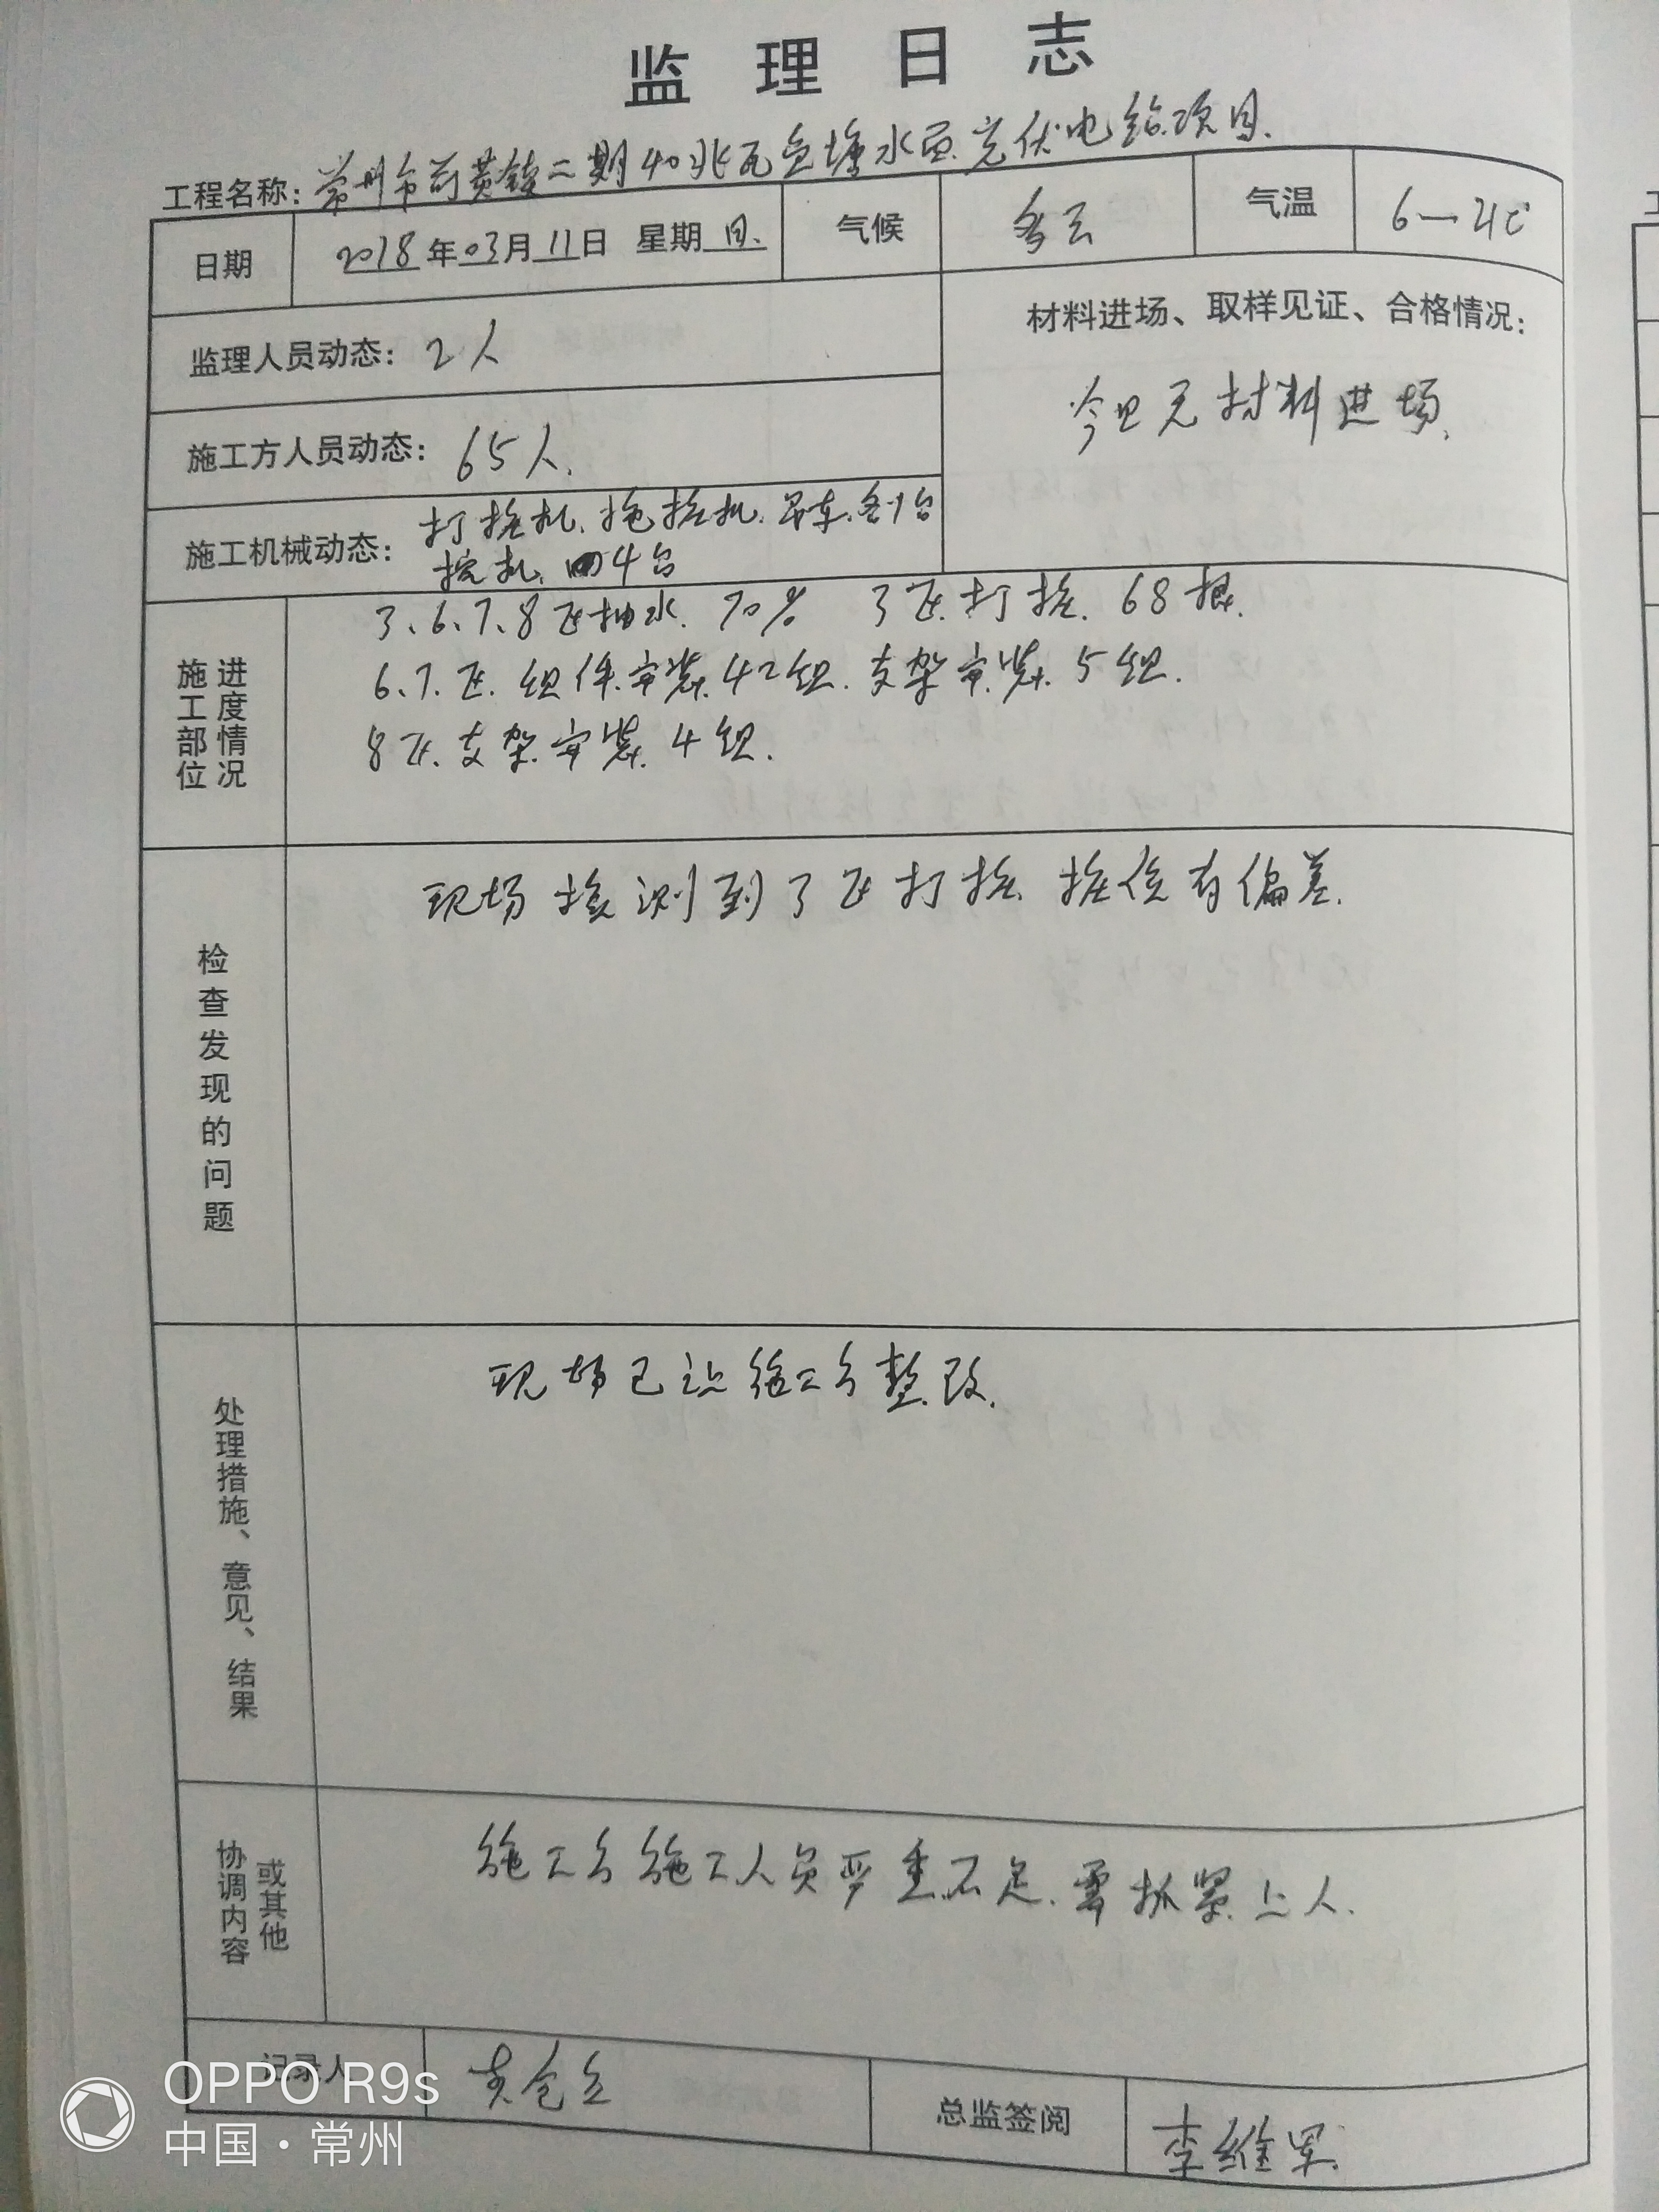 监理日志
工程名称：常州市前黄镇二期40兆瓦鱼塘水面光伏电站项目.
日期 2018年03月11日 星期日. 气候 多云 气温 6—21℃
监理人员动态：2人
材料进场、取样见证、合格情况：
今日无材料进场.
施工方人员动态：65人.
施工机械动态：打桩机.拖桩机.吊车.各1台
挖机.四4台
施工部位 进度情况
3、6、7、8区抽水.70% 3区.打桩.68根.
6.7.区.组件安装.42组.支架安装.5组.
8区.支架安装.4组.
检查发现的问题
现场检测到3区打桩.桩位有偏差.
处理措施、意见、结果
现场已让施工方整改.
协调内容 或其他
施工方施工人员严重不足.需抓紧上人.
记录人
总监签阅 李维军.
OPPO R9s
中国·常州